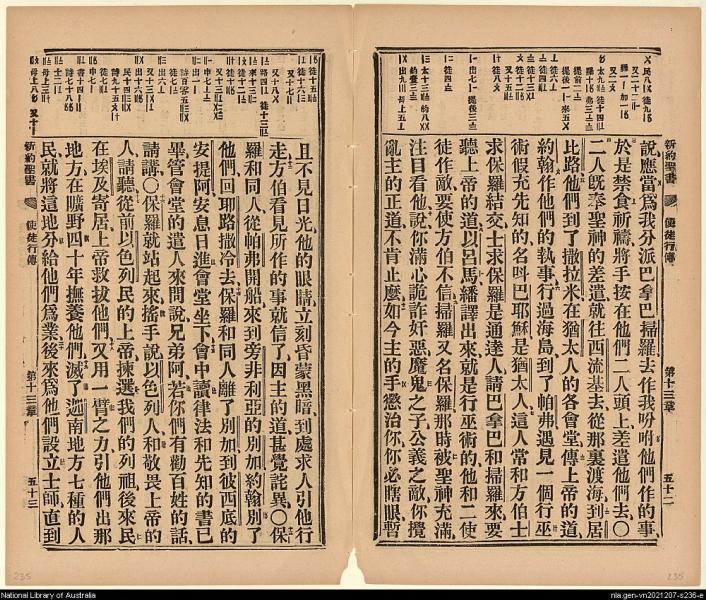 說應當爲我分派巴拿巴掃羅去作我吩咐他們作的事
於是禁食祈禱將手按在他們二人頭上差遣他們去〇
二人旣奉聖神的差遣就往西流基去從那裏渡海到居
比路他們到了撒拉米在猶太人的各會堂傳上帝的道
約翰作他們的執事行過海島到了帕弗遇見一個行巫
術假充先知的名呌巴耶穌是猶太人這人常和方伯士
求保羅結交士求保羅是通達人請巴拿巴和掃羅來要
聽上帝的道以呂馬繙譯出來就是行巫術的他和二使
徒作敵要使方伯不信掃羅又名保羅那時被聖神充滿
注目看他說你滿心詭詐奸惡魔鬼之子公義之敵你攪
亂主的正道不肯止麼如今主的手懲治你你必瞎眼暫
新約聖書
使徒行傳
第十三章
五十二
且不見日光他的眼睛立刻昏蒙黑暗到處求人引他行
走方伯看見所作的事就信了因主的道甚覺詫異〇保
羅和同人從帕弗開船來到旁非利亞的別加約翰別了
他們回耶路撒冷去保羅和同人離了別加到彼西底的
安提阿安息日進會堂坐下會中讀律法和先知的書已
畢管會堂的遣人來問說兄弟阿若你們有勸百姓的話
請講〇保羅就站起來搖手說以色列人和敬畏上帝的
人請聽從前以色列民的上帝揀選我們的列祖後來民
在埃及寄居上帝救拔他們又用一臂之力引他們出那
地方在曠野四十年撫養他們滅了迦南地方七種的人
民就將這地分給他們爲業後來爲他們設立士師直到
新約聖書
使徒行傳
第十三章
五十三
235
235
National Library of Australia
nla.gen-vn2021207-s236-e